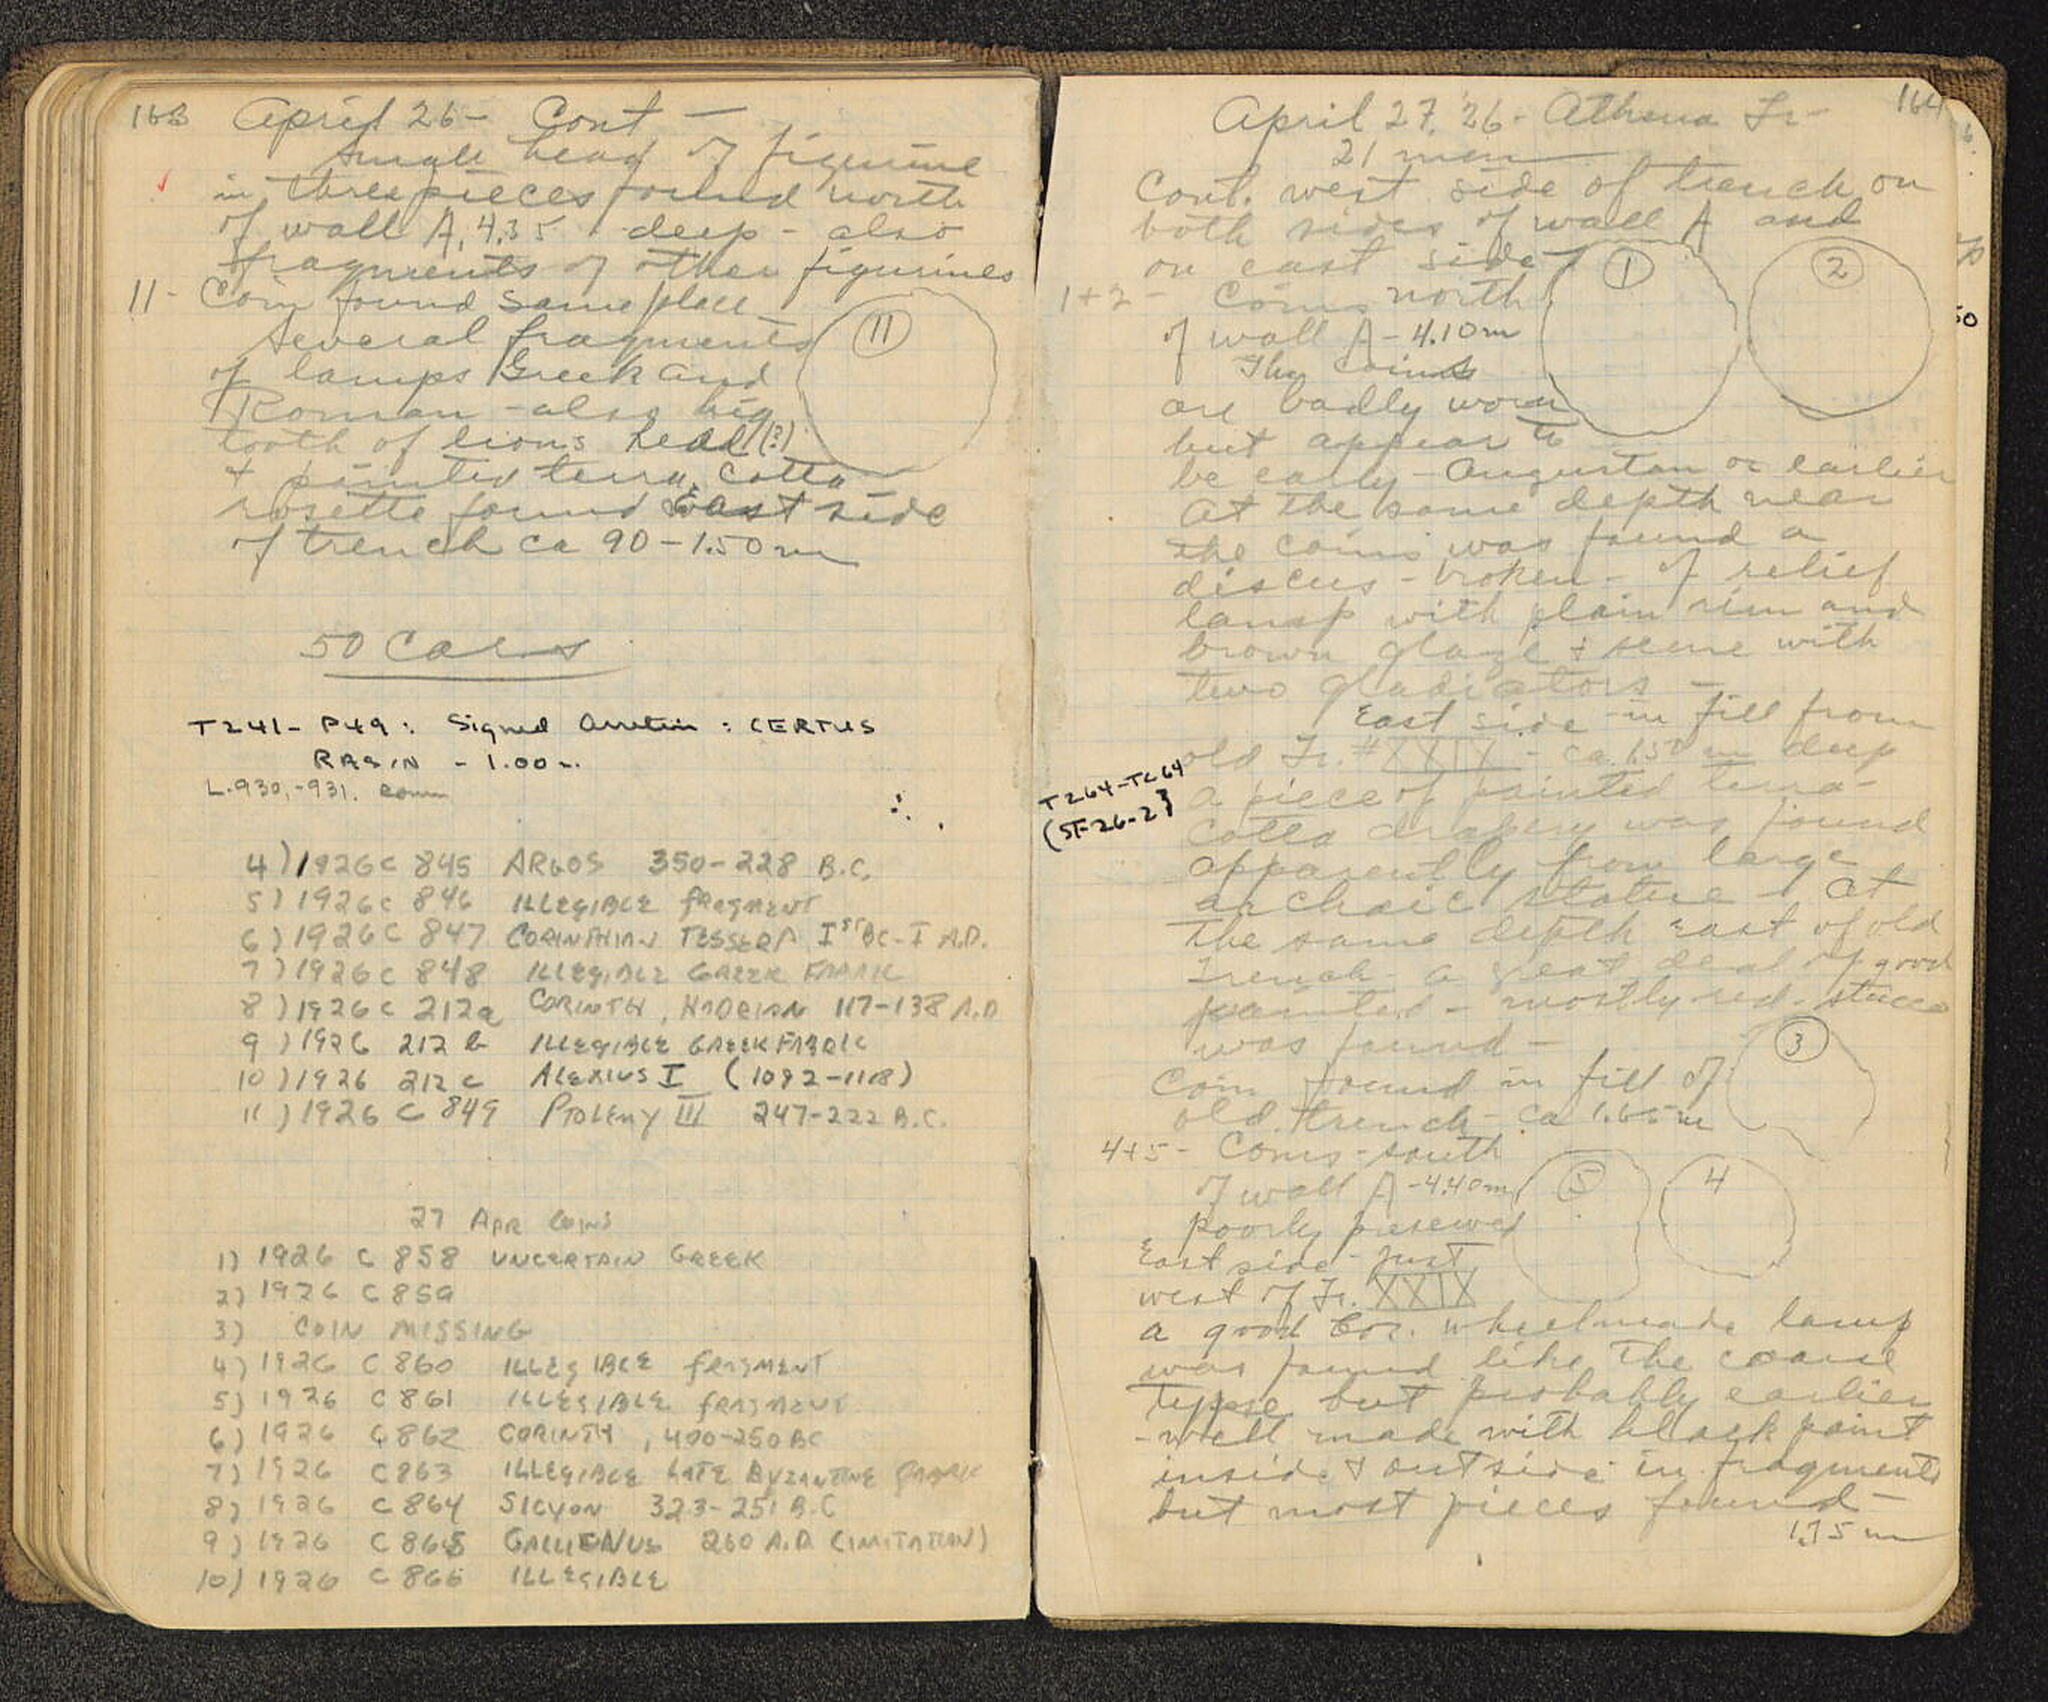 163 April 26 - Cont -
Small head of figurine
in three pieces found north
of wall A, 4.35 deep - also
fragments of other figurines
11 - Coin found same place
11
several fragments
of lamps Greek and
Roman - also big
tooth of lions head (?)
+ painted terra cotta
rosette found East side
of trench ca 90 - 1.50 m
50 Cars
T241 - P49: Signed Arretin: CERTUS
RASIN - 1.00 m.
L. 930, -931.
4) 1926 C 845 ARGOS 350-228 B.C.
5) 1926 C 846 ILLEGIBLE FRAGMENT
6) 1926 C 847 CORINTHIAN TESSERA Ist BC - I A.D.
7) 1926 C 848 ILLEGIBLE GREEK FABRIC
8) 1926 C 212a CORINTH, HADRIAN 117-138 A.D
9) 1926 212 b ILLEGIBLE GREEK FABRIC
10) 1926 212 c ALEXIUS I (1092-1118)
11) 1926 C 849 PTOLEMY III 247-222 B.C.
27 APR COINS
1) 1926 C 858 UNCERTAIN GREEK
2) 1926 C 859
3) COIN MISSING
4) 1926 C 860 ILLEGIBLE FRAGMENT
5) 1926 C 861 ILLEGIBLE FRAGMENT
6) 1926 C 862 CORINTH, 400-250 BC
7) 1926 C 863 ILLEGIBLE LATE BYZANTINE FABRIC
8) 1926 C 864 SICYON 323-251 B.C
9) 1926 C 865 GALLIENUS 260 A.D. (IMITATION)
10) 1926 C 866 ILLEGIBLE
164
April 27, '26 - Athena Tr -
21 men
Cont. west side of trench on
both sides of wall A and
on east side
1 2
1+2 - Coins north
of wall A - 4.10 m
The coins
are badly worn
but appear to
be early - Augustan or earlier
At the same depth near
the coins was found a
discus - broken - of relief
lamp with plain rim and
brown glaze + scene with
two gladiators -
East side - in fill from
old Tr. # XXIX - ca. 1.50 m deep
T264 - TC64
(SF-26-2)
a piece of painted terra-
cotta drapery was found
apparently from large
archaic statue - At
the same depth East of old
Trench - a great deal of good
painted - mostly red - stucco
was found -
3
Coin found in fill of
old trench - ca 1.65 m
4+5 - Coins - south
of wall A - 4.40 m
5 4
poorly preserved
East side - just
west of Tr. XXIX
a good Cor. wheelmade lamp
was found like the coarse
type but probably earlier
- well made with black paint
inside + outside - in fragments
but most pieces found -
1.75 m